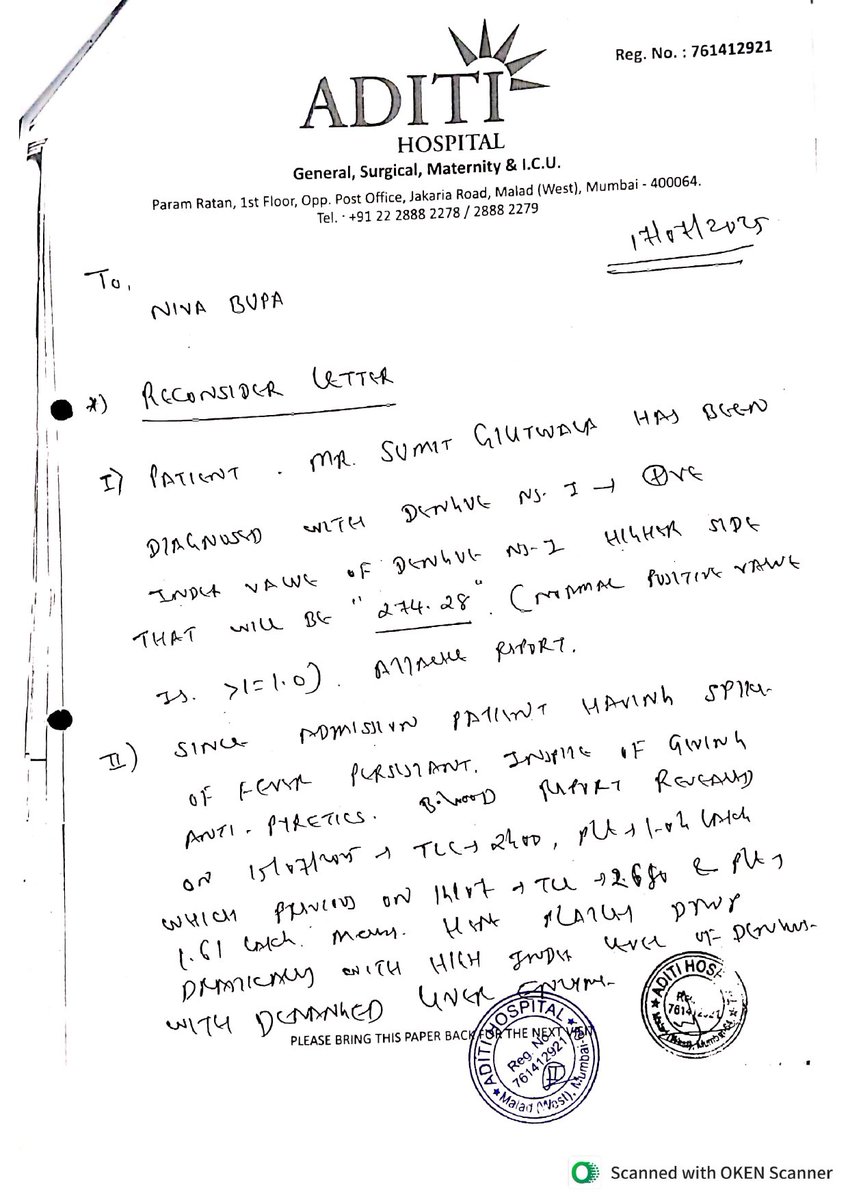 Reg. No. : 761412921
ADITI
HOSPITAL
General, Surgical, Maternity & I.C.U.
Param Ratan, 1st Floor, Opp. Post Office, Jakaria Road, Malad (West), Mumbai - 400064.
Tel. : +91 22 2888 2278 / 2888 2279
17/07/2025
To,
NIVA BUPA
*) RECONSIDER LETTER
I) PATIENT . MR. SUMIT GHUTWALA HAS BEEN
DIAGNOSED WITH DENGUE NS-I → ⊕VE
INDEX VALUE OF DENGUE NS-I HIGHER SIDE
THAT WILL BE "274.28". (NORMAL POSITIVE VALUE
IS. >/=1.0). ATTACHE REPORT.
II) SINCE ADMISSION PATIENT HAVING SPIKE
OF FEVER PERSISTANT. INSPITE OF GIVING
ANTI-PYRETICS. BLOOD REPORT REVEALED
ON 15/07/2025 → TLC → 2400, PLT → 1.02 LAKH
WHICH PREVIOUS ON → TLC → 2.680 & PLT →
1.61 LAKH. MEANS. PLATELET DROP
DRATICALLY WITH HIGH INDEX LEVEL OF DENGUE
WITH DERANGED LIVER ENZYME
PLEASE BRING THIS PAPER BACK FOR THE NEXT VISIT
ADITI HOSPITAL
Reg. No.
761412921
Malad (West), Mumbai
ADITI HOSPITAL
Scanned with OKEN Scanner